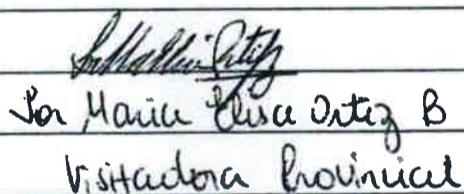 Sor Maria Elisa Ortiz B
Visitadora Provincial